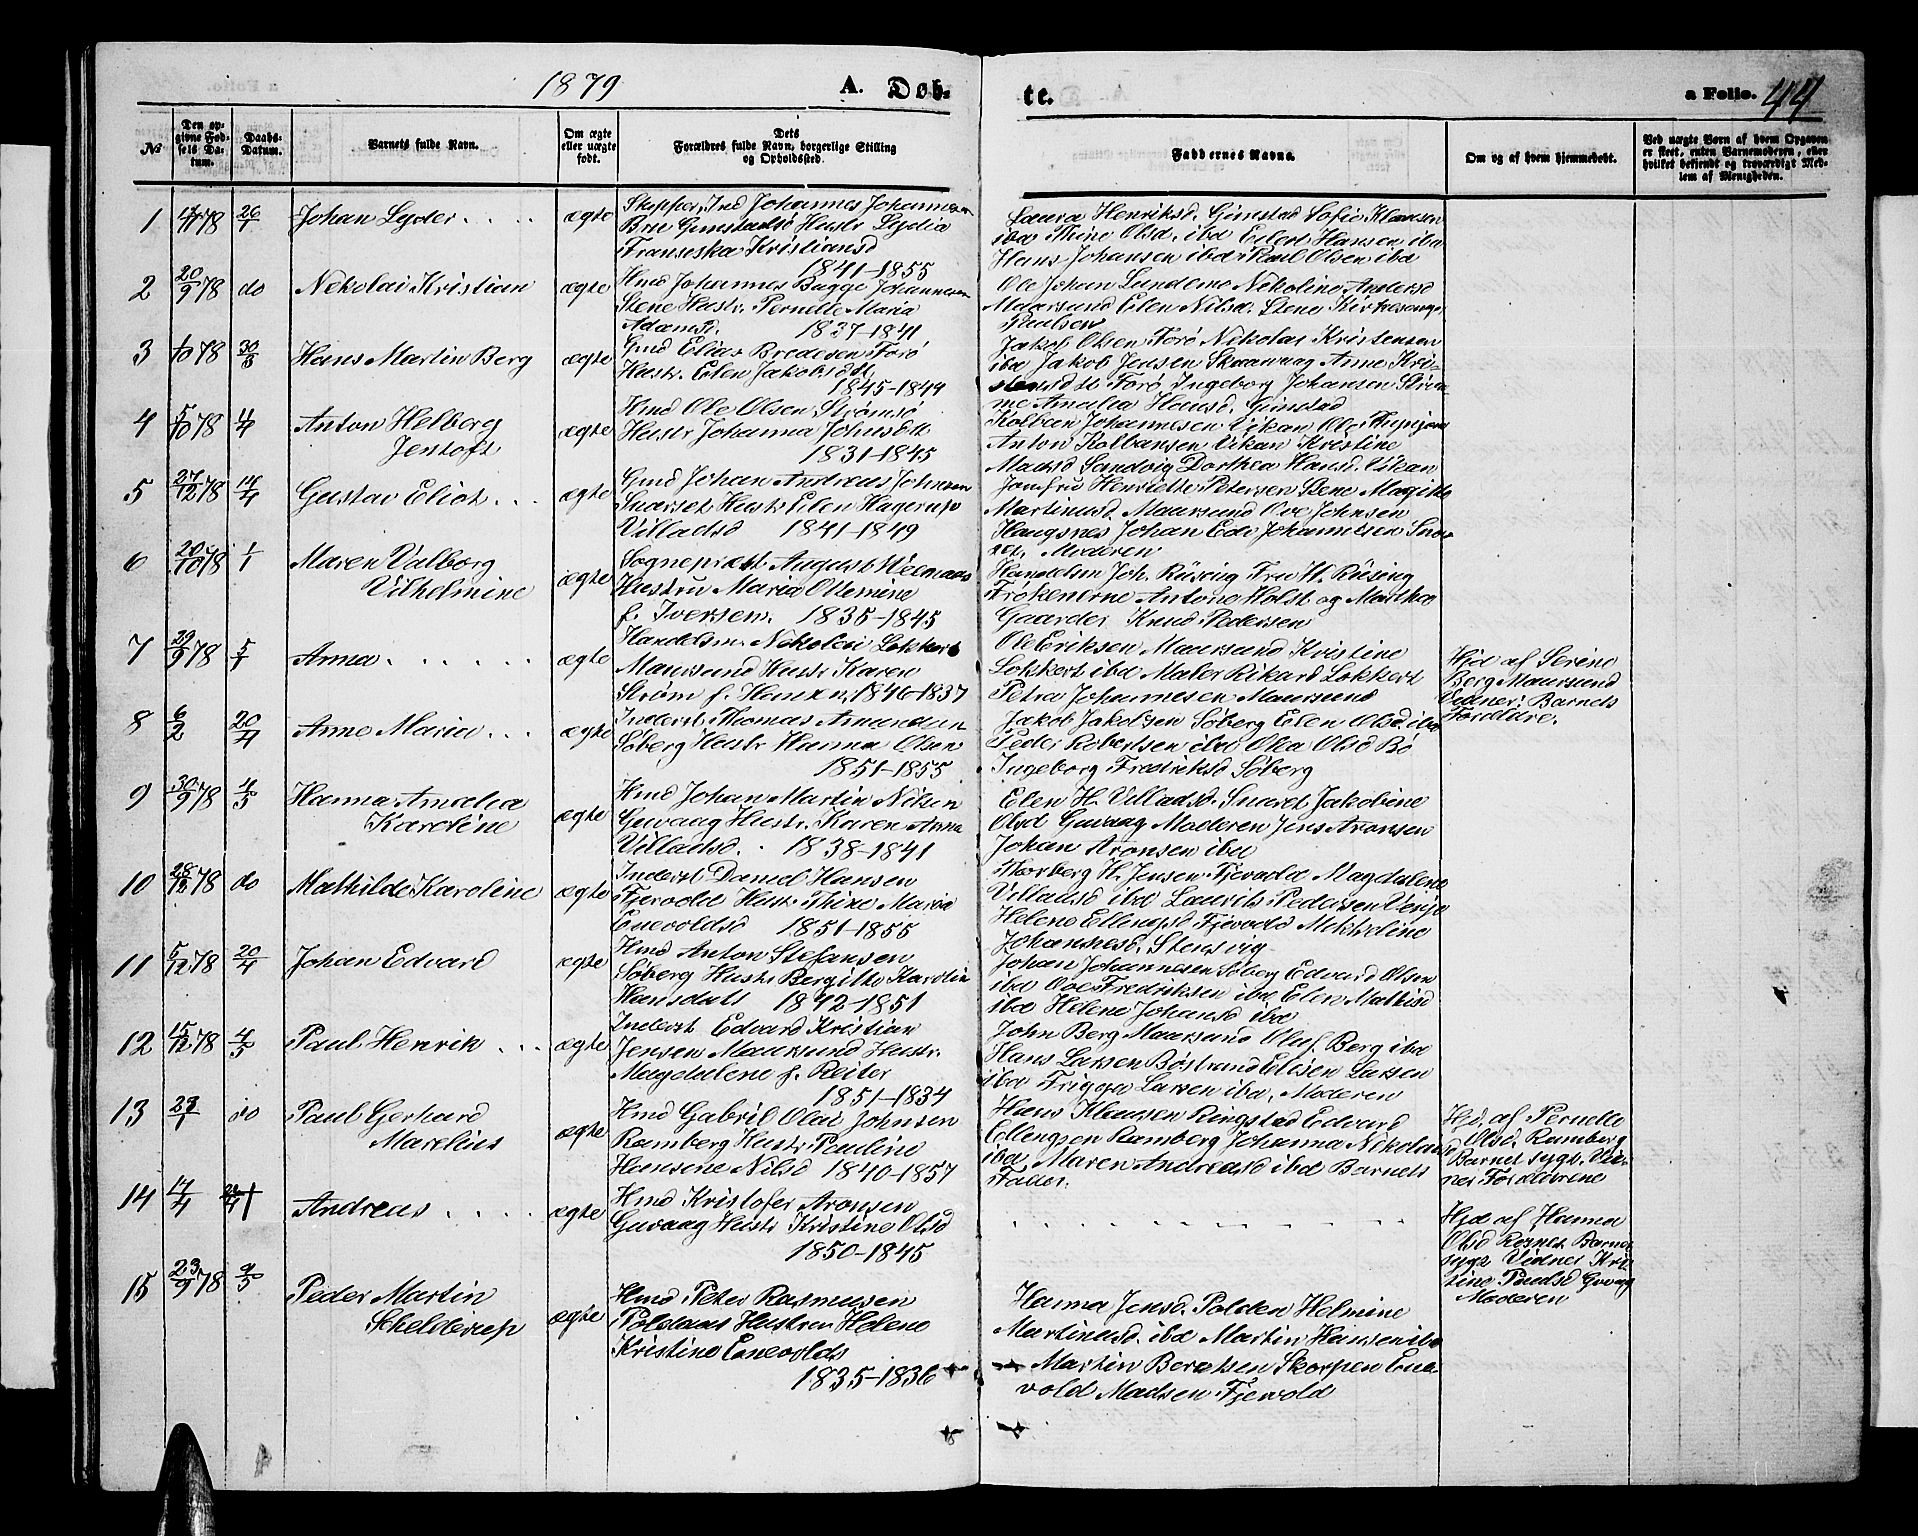 1879 A. Døb-
te. a Folio. 44
№
Den op-
givne Fød-
sels Da-
tum.
Daabs-
Datum.
Barnets fulde Navn.
Om ægte
eller uægte
født.
Dets
Forældres fulde Navn, borgerlige Stilling
og Opholdssted.
Faddernes Navne.
Om og af hvem hjemmedøbt.
Ved uægte Børn af hvem Opgaven
er skeet, enten Barnemoderen, eller
hvilket bekjendt og troværdigt Med-
lem af Menigheden.
1 78 26/1 Johan Lyder ægte
Skipper, Ind Johannes Johannesen
Bru Gimstadsö Hustr Lydia
Franseska Kristiansd
1841-1855
Laura Henriksd. Gimstad Sofie Klausen
ibd Thine Olsd. ibd Eilert Hansen ibd
Hans Johansen ibd Paul Olsen ibd
2 20/9 78 do Nekolai Kristian ægte
Hmd Johannes Bugge Johannesen
Stene Hustr. Pernelle Maria
Adamsd. 1837-1841
Ole Johan Lundemo Nekoline Andersd
Maursund Elen Nilsd. Stene Kirkesang.
Paulsen
3 1/10 78 30/3 Hans Martin Berg ægte
Gmd Elias Bredesen Forö
Hustr. Elen Jakobsdtt.
1845-1844
Jakob Olsen Forö Nikolai Kristensen
ibd Jakob Jensen Skaanvag Anne Kri-
stensdtt Forö Ingeborg Johansen Strøm-
me Amalia Hansd. Gimstad
4 5/10 78 Anton Helberg
Jentoft ægte
Hmd Ole Olsen Strømsö
Hustr Johanna Johnsdtt.
1831-1845
Kolben Johannesen Vikan Ole
Anton Kolbansen Vikan Kristine
Madsd Sandvig Dorthea Hansd. Vikan
5 27/12 78 14/4 Gustav Eliot ægte
Gmd Johan Andreas Johnsen
Snarset Hustr Elen Hagerup
Villadsd 1841-1849
Jomfru Henriette Petersen Bene Magitte
Martinusd. Maursund Ove Johnsen
Haugsnes Johan Edv Johannesen Snar-
set, Moderen
6 20/10 78 1/1 Maren Valborg
Vilhelmine ægte
Sognepræst August Weenaas
Hustru Maria Ottemine
f. Iversen. 1835-1845
Handelsm Joh. Rüsing Fru H. Rüsing
Frøkenerne Antone Holst og Martha
Gaarder Knud Pedersen
7 29/9 78 5/1 Anna ægte
Handelsm. Nikolai Lokkert
Maursund Hustr Karen
Strøm f. Hansen, 1846-1837
Ole Eriksen Maursund Kristine
Lokkert ibd Maler Rikard Lokkert
Petra Johannesen Maursund
Hjd af Serine
Berg Maursund
Vidner: Barnets
Forældre.
8 6/2 20/4 Anne Maria ægte
Inderst Thomas Amundsen
Söberg Hustr Hanna Olsen
1851-1855
Jakob Jakobsen Söberg Elen Olsd. ibd
Peder Robertsen ibd Oka Olsd Bö
Ingeborg Fredriksd Söberg
9 30/9 78 4/5 Hanna Amalia
Karoline ægte
Hmd Johan Martin Nilsen
Guvaag Hustr. Karen Anna
Villadsd. 1838-1841
Elen H. Villadsd. Snaret Jakobine
Olsd Guvaag Moderen Jens Aronsen
Johan Aronsen ibd
10 28/12 78 do Mathilde Karoline ægte
Inderst Daniel Hansen
Fjevolde Hustr Thine Maria
Enevoldsd 1851-1855
Thorberg H. Jensen Fjevold Magdalene
Villadsd ibd Laurits Pedersen Vinje
Helene Ellingsd Fjevold Mekkeline
Johannesd. Stensvig
11 5/12 78 20/4 Johan Edvard ægte
Hmd Anton Stefansen
Söberg Hustr Bergitte Karolin
Hansdatt 1842-1851
Johan Johannesen Söberg Edvard Olsen
ibd Ove Fredriksen ibd Elen Mathisd
ibd Helene Johansd ibd
12 15/12 78 4/5 Paul Henrik ægte
Inderst Edvard Kristian
Jensen Maursund Hustr.
Magdalene f. Reiter
1851-1834
John Berg Maursund Oluf Berg ibd
Hans Larsen Böstrand Elisen Larsen
ibd Frigga Larsen ibd, Moderen
13 do Paul Gerhard
Marelius ægte
Hmd Gabril Olai Johnsen
Ramberg Hustr Pauline
Hansine Nilsd 1840-1857
Hans Klausen Ringstad Edvard
Ellingsen Ramberg Johanna Nikolaisd
ibd Maren Andreasd ibd Barnets
Fader.
Hjd. af Pernelle
Olsd. Ramberg
Barnet sygt. Vid-
ner Forældrene
14 17/4 Andreas ægte
Hmd Kristofer Aronsen
Guvaag Hustr Kristine Olsd
1850-1845
Hjd af Hanna
Olsd Barnet
sygt Vidner Kri-
stine Paulsd Guvaag
Moderen
15 23/9 78 9/5 Peder Martin
Schelderup ægte
Hmd Peter Rasmusen
Poldaas Hustru Helene
Kristine Enevolds
1835-1836
Hanna Jensd. Polden Helmine
Martinusd. ibd Martin Hansen ibd
Martin Berntsen Skorpen Ene-
vold Madsen Fjevold